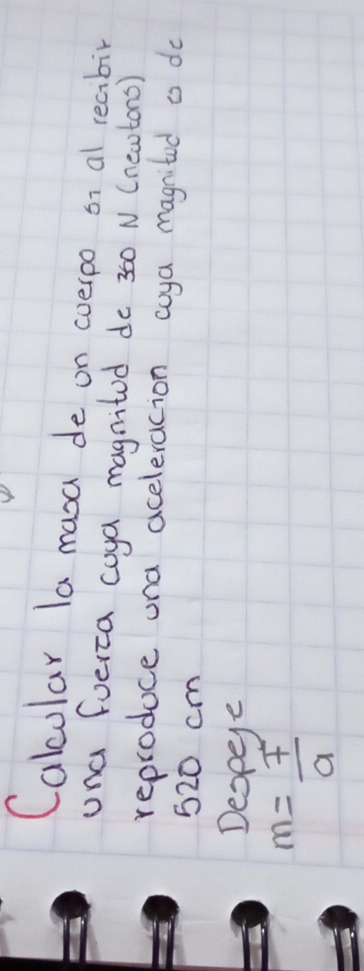 Calcular la masa de un cuerpo si al recibir
una fuerza cuya magnitud de 350 N (newtons)
reproduce una aceleracion cuya magnitud es de
520 cm
Despeje
m = F
a